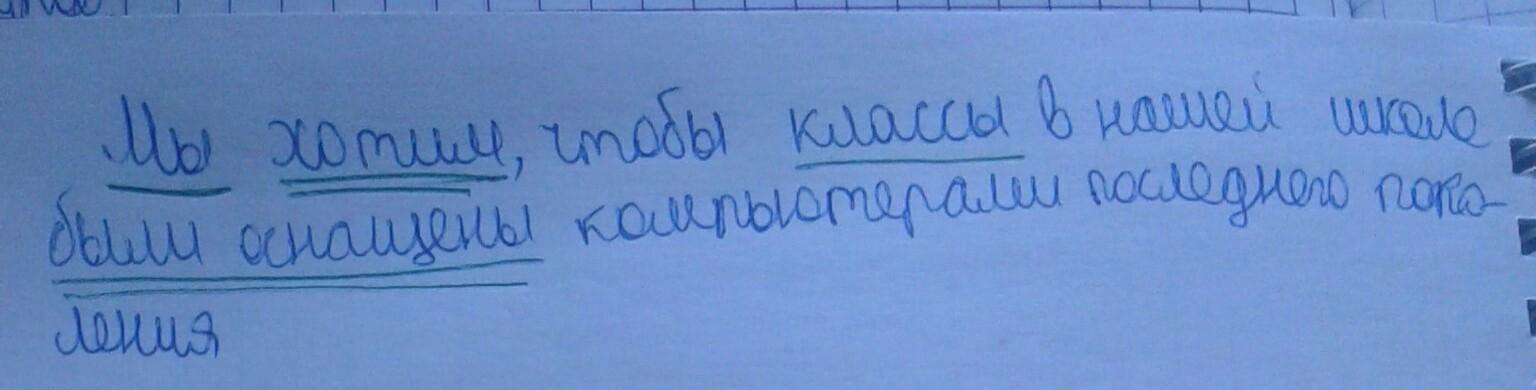 Мы хотим, чтобы классы в нашей школе
были оснащены компьютерами последнего поко-
ления